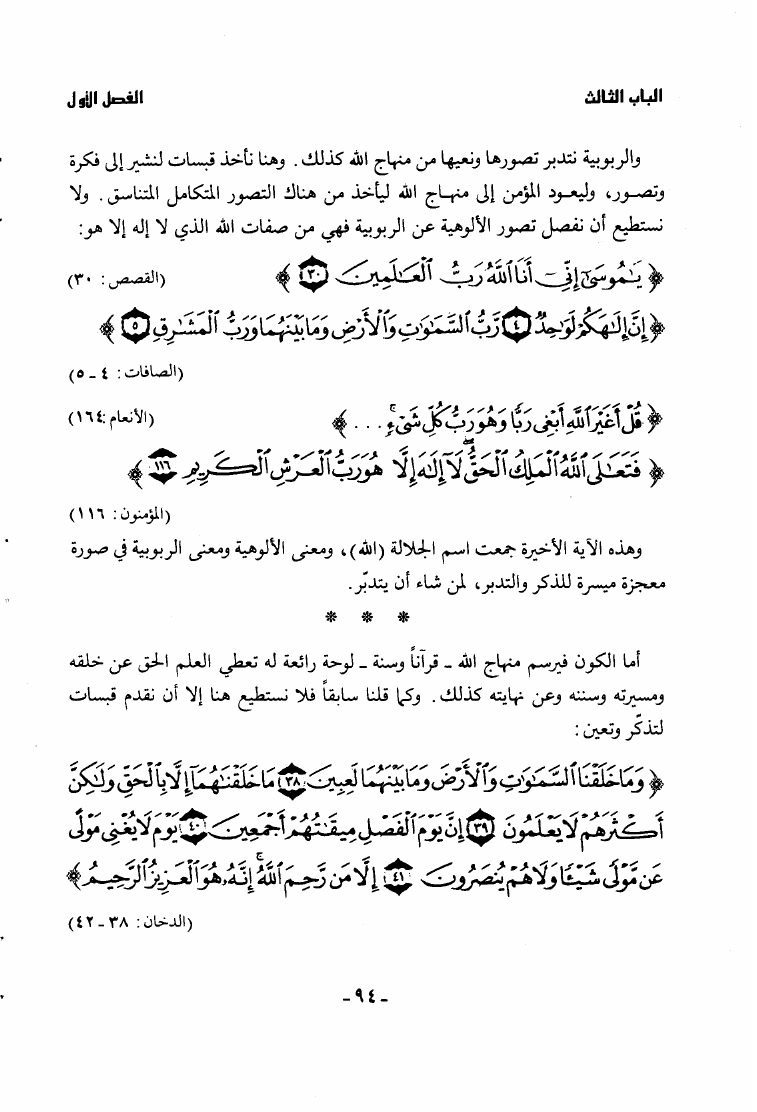 الباب الثالث
الفصل الأول
والربوبية نتدبر تصورها ونعيها من منهاج الله كذلك. وهنا نأخذ قبسات لنشير إلى فكرة
وتصور، وليعود المؤمن إلى منهاج الله ليأخذ من هناك التصور المتكامل المتناسق. ولا
نستطيع أن نفصل تصور الألوهية عن الربوبية فهي من صفات الله الذي لا إله إلا هو:
﴿ يَـٰمُوسَىٰٓ إِنِّىٓ أَنَا ٱللَّهُ رَبُّ ٱلْعَـٰلَمِينَ ٣٠ ﴾ (القصص: ٣٠)
﴿ إِنَّ إِلَـٰهَكُمْ لَوَٰحِدٌ ٤ رَّبُّ ٱلسَّمَـٰوَٰتِ وَٱلْأَرْضِ وَمَا بَيْنَهُمَا وَرَبُّ ٱلْمَشَـٰرِقِ ٥ ﴾
(الصافات: ٤ ـ ٥)
﴿ قُلْ أَغَيْرَ ٱللَّهِ أَبْغِى رَبًّا وَهُوَ رَبُّ كُلِّ شَىْءٍ ۚ . . . ﴾ (الأنعام: ١٦٤)
﴿ فَتَعَـٰلَى ٱللَّهُ ٱلْمَلِكُ ٱلْحَقُّ ۖ لَآ إِلَـٰهَ إِلَّا هُوَ رَبُّ ٱلْعَرْشِ ٱلْكَرِيمِ ١١٦ ﴾
(المؤمنون: ١١٦)
وهذه الآية الأخيرة جمعت اسم الجلالة (الله)، ومعنى الألوهية ومعنى الربوبية في صورة
معجزة ميسرة للذكر والتدبر، لمن شاء أن يتدبّر.
* * *
أما الكون فيرسم منهاج الله ـ قرآناً وسنة ـ لوحة رائعة له تعطي العلم الحق عن خلقه
ومسيرته وسننه وعن نهايته كذلك. وكما قلنا سابقاً فلا نستطيع هنا إلا أن نقدم قبسات
لتذكّر وتعين:
﴿ وَمَا خَلَقْنَا ٱلسَّمَـٰوَٰتِ وَٱلْأَرْضَ وَمَا بَيْنَهُمَا لَـٰعِبِينَ ٣٨ مَا خَلَقْنَـٰهُمَآ إِلَّا بِٱلْحَقِّ وَلَـٰكِنَّ
أَكْثَرَهُمْ لَا يَعْلَمُونَ ٣٩ إِنَّ يَوْمَ ٱلْفَصْلِ مِيقَـٰتُهُمْ أَجْمَعِينَ ٤٠ يَوْمَ لَا يُغْنِى مَوْلًى
عَن مَّوْلًى شَيْـًٔا وَلَا هُمْ يُنصَرُونَ ٤١ إِلَّا مَن رَّحِمَ ٱللَّهُ ۚ إِنَّهُۥ هُوَ ٱلْعَزِيزُ ٱلرَّحِيمُ ﴾
(الدخان: ٣٨ ـ ٤٢)
ـ ٩٤ ـ